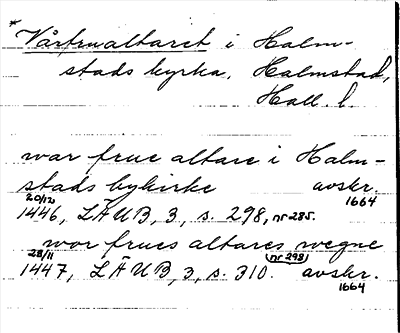 * Vårfrualtaret i Halm-
stads kyrka, Halmstad,
Hall. l.
war frue altare i Halm-
stads bykirke avskr.
20/12 1664
1446, LÄUB, 3, s. 298, nr 285.
wor frues altares wegne
28/11 nr 298)
1447, LÄUB, 3, s. 310. avskr.
1664